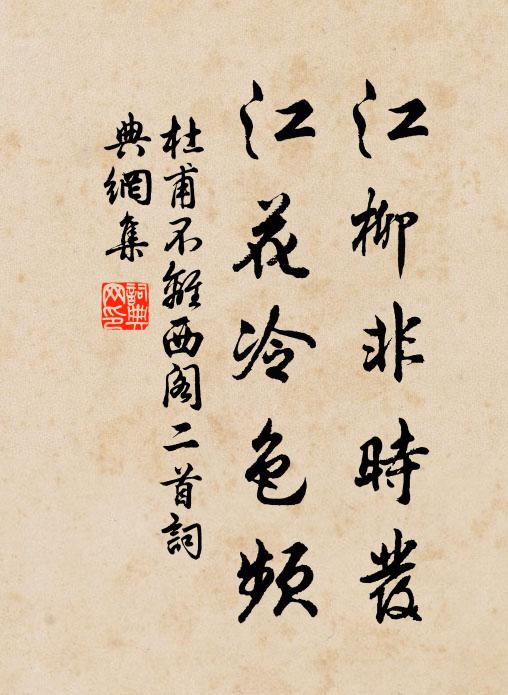 江柳非時發
江花冷色頻
杜甫不離西閣二首詞
典網集
詞典網印